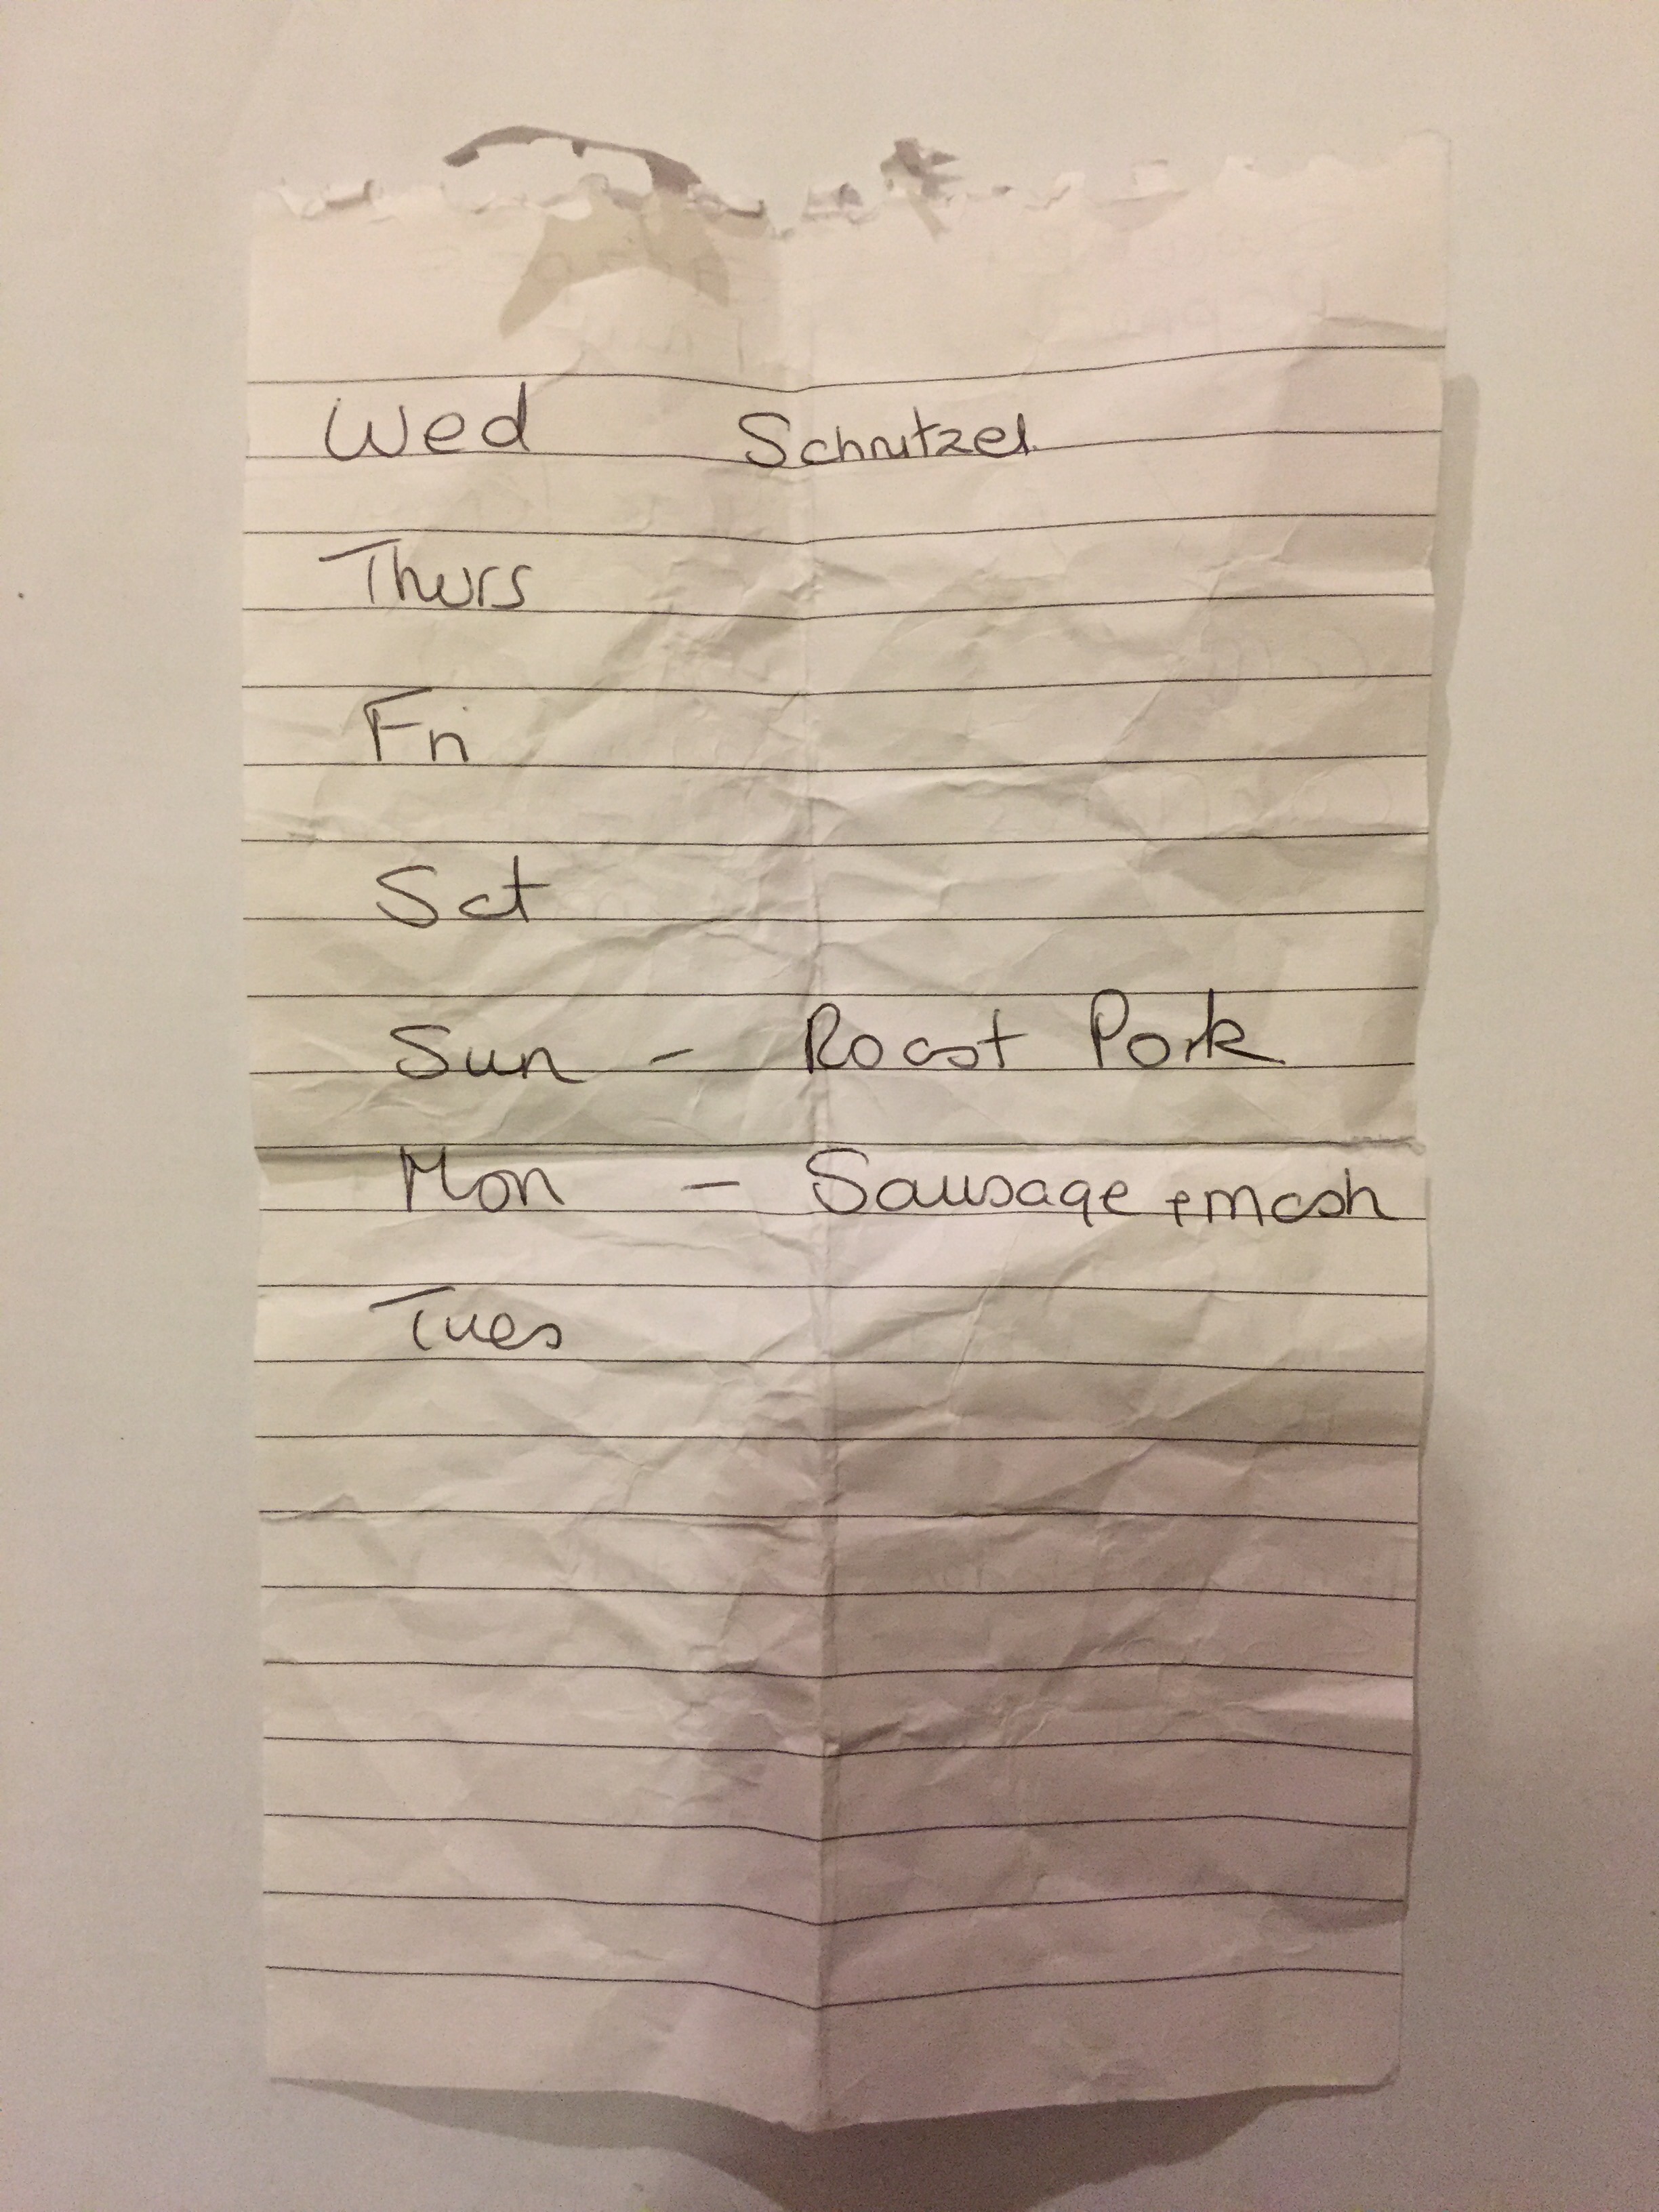 Wed Schnitzel
Thurs
Fri
Sat
Sun - Roast Pork
Mon - Sausage + mash
Tues